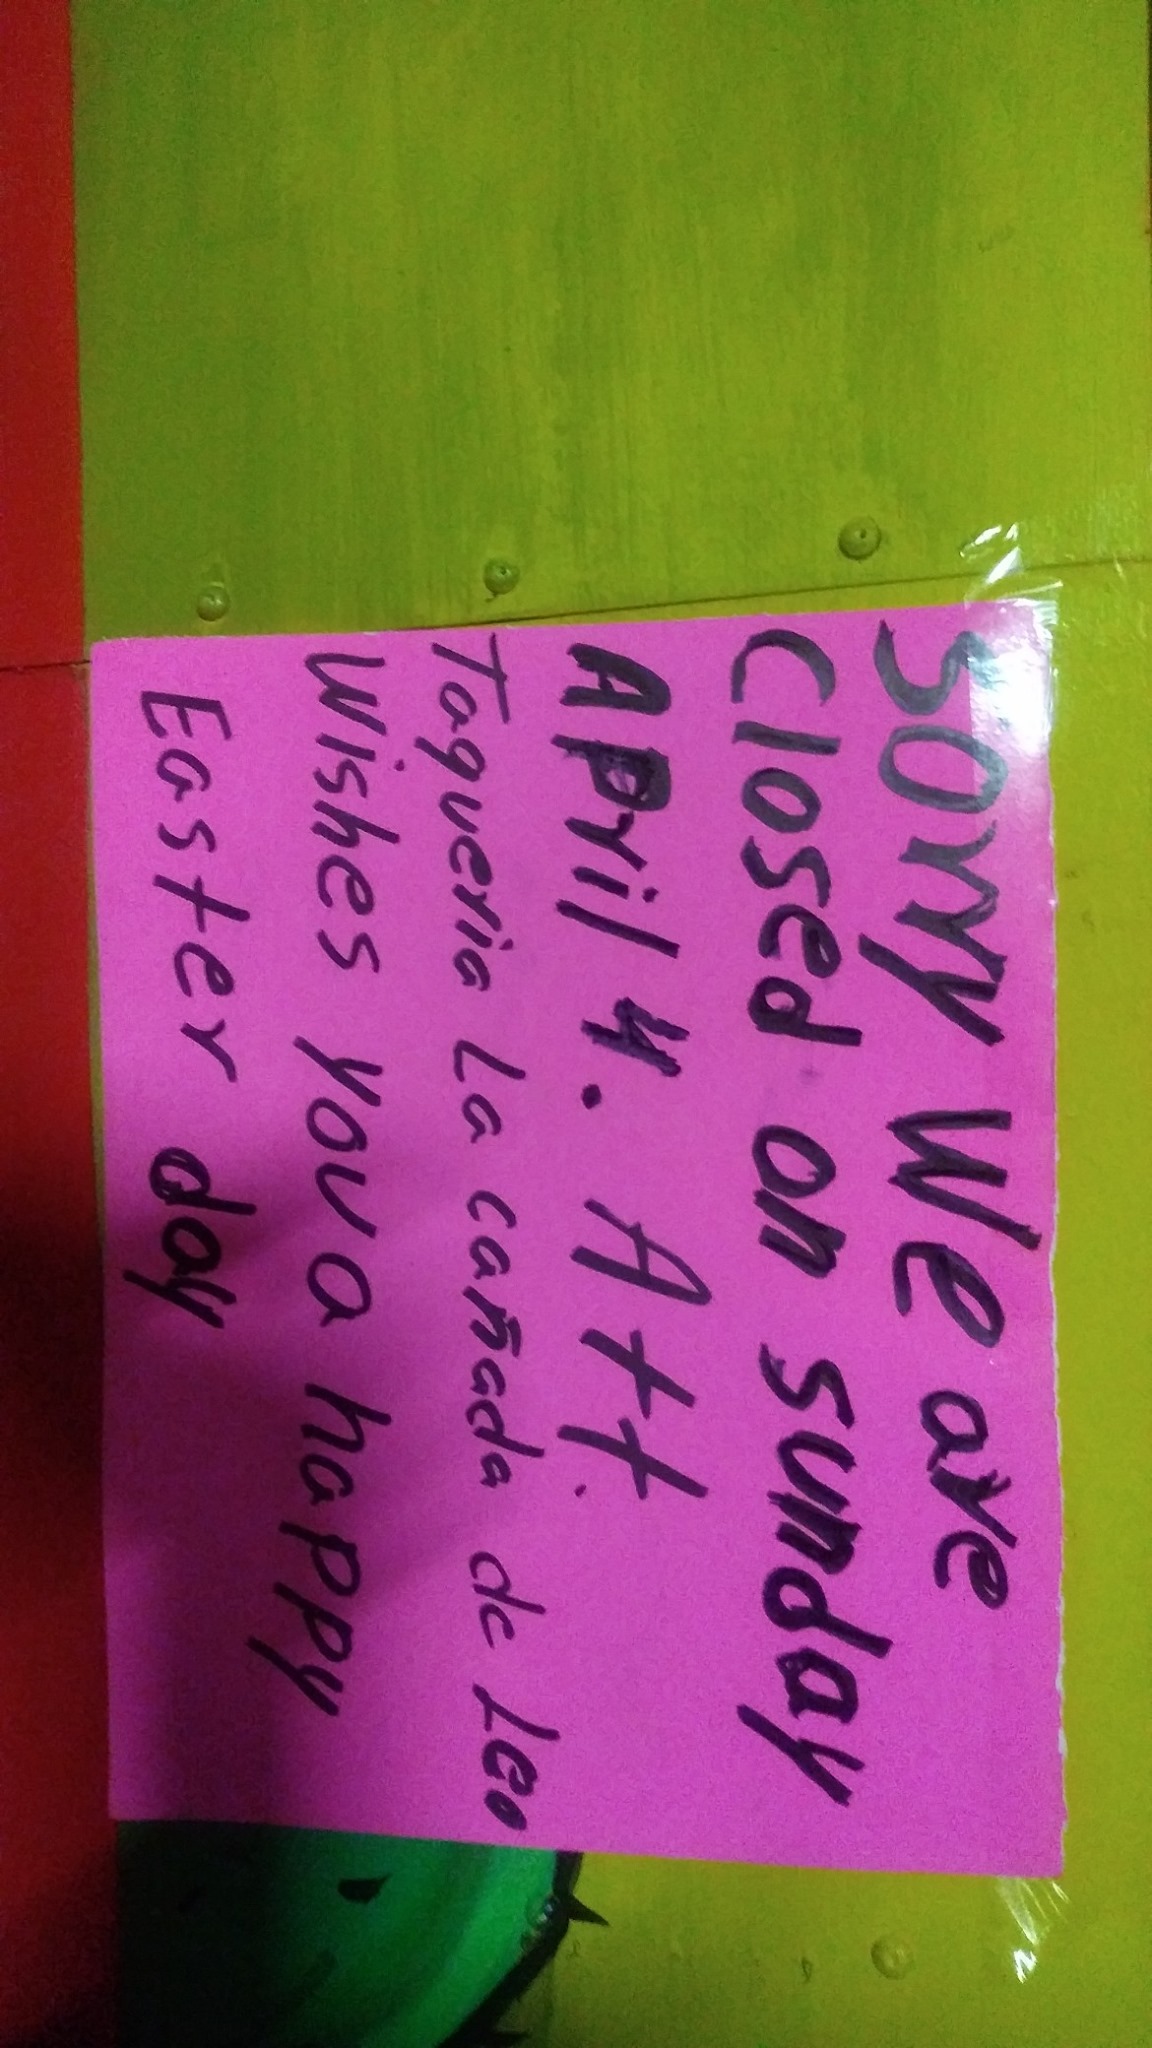 Sorry We are
Closed on sunday
APril 4. Att.
Taqueria La cañada de Leo
Wishes you a happy
Easter day